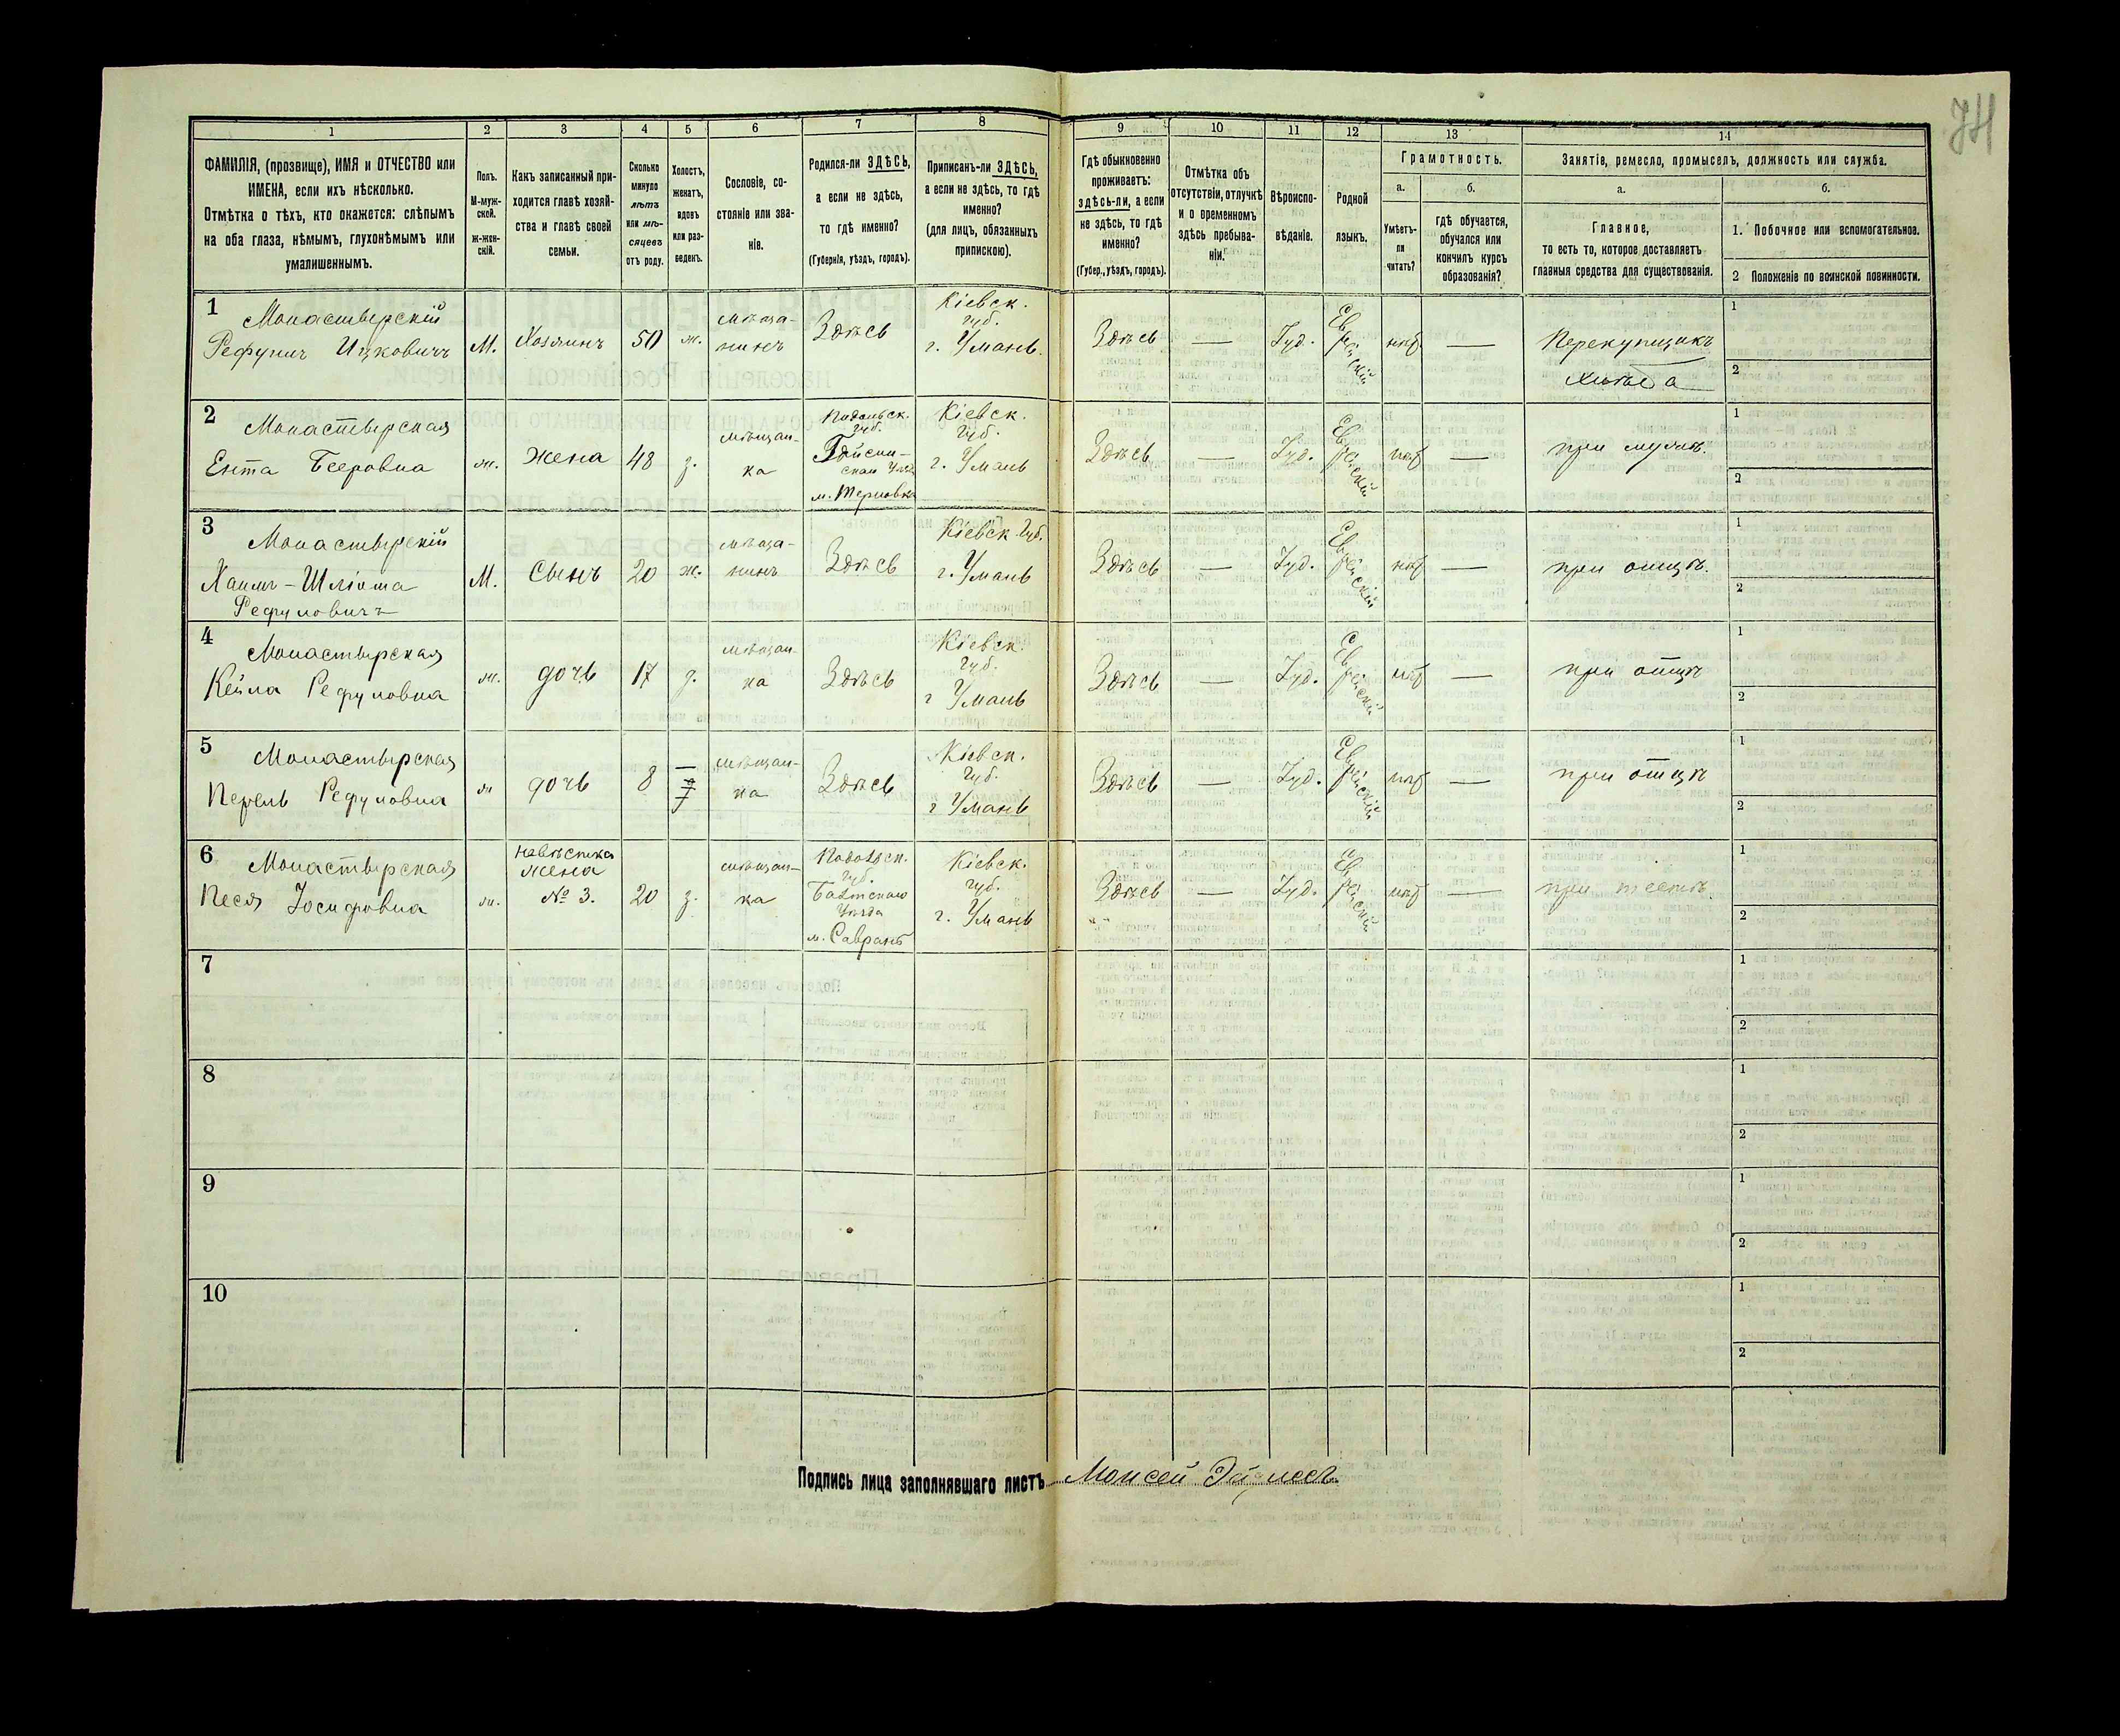 74
1
2
3
4
5
6
7
8
9
10
11
12
13
14
ФАМИЛІЯ, (прозвище), ИМЯ и ОТЧЕСТВО или
ИМЕНА, если ихъ нѣсколько.
Отмѣтка о тѣхъ, кто окажется: слѣпымъ
на оба глаза, нѣмымъ, глухонѣмымъ или
умалишеннымъ.
Полъ.
М-муж-
ской.
ж-жен-
скій.
Какъ записанный при-
ходится главѣ хозяй-
ства и главѣ своей
семьи.
Сколько
минуло
лѣтъ
или мѣ-
сяцевъ
отъ роду.
Холостъ,
женатъ,
вдовъ
или раз-
веденъ.
Сословіе, со-
стояніе или зва-
ніе.
Родился-ли ЗДѢСЬ,
а если не здѣсь,
то гдѣ именно?
(Губернія, уѣздъ, городъ).
Приписанъ-ли ЗДѢСЬ,
а если не здѣсь, то гдѣ
именно?
(для лицъ, обязанныхъ
припискою).
Гдѣ обыкновенно
проживаетъ:
здѣсь-ли, а если
не здѣсь, то гдѣ
именно?
(Губер., уѣздъ, городъ).
Отмѣтка объ
отсутствіи, отлучкѣ
и о временномъ
здѣсь пребыва-
ніи.
Вѣроиспо-
вѣданіе.
Родной
языкъ.
Грамотность.
а.
б.
Умѣетъ-
ли
читать?
гдѣ обучается,
обучался или
кончилъ курсъ
образованія?
Занятіе, ремесло, промыселъ, должность или служба.
а.
б.
Главное,
то есть то, которое доставляетъ
главныя средства для существованія.
1. Побочное или вспомогательное.
2 Положеніе по воинской повинности.
1
Монастырскій
Рефулъ Ицковичъ
М.
Хозяинъ
50
ж.
мѣща-
нинъ
Здѣсь
Кіевск.
губ.
г. Умань.
Здѣсь
—
Іуд.
Еврейскій
нѣт
—
Перекупщикъ
хлѣба
1
2
2
Монастырская
Ента Бееровна
ж.
жена
48
з.
мѣщан-
ка
Подольск.
губ.
Гайсин-
скаго Уѣзд
м. Терновка
Кіевск.
Губ.
г. Умань
Здѣсь
—
Іуд.
Еврейскій
нѣт
—
при мужѣ.
1
2
3
Монастырскій
Хаимъ-Шліома
Рефуловичъ
М.
Сынъ
20
ж.
мѣща-
нинъ
Здѣсь
Кіевск. Губ.
г. Умань
Здѣсь
—
Іуд.
Еврейскій
нѣт
—
при отцѣ.
1
2
4
Монастырская
Кейла Рефуловна
ж.
дочь
17
д.
мѣщан-
ка
Здѣсь
Кіевск.
Губ.
г Умань
Здѣсь
—
Іуд.
Еврейскій
нѣт
—
при отцѣ
1
2
5
Монастырская
Перель Рефуловна
ж
дочь
8
—
мѣщан-
ка
Здѣсь
Кіевск.
Губ.
г Умань
Здѣсь
—
Іуд.
Еврейскій
нѣт
—
при отцѣ
1
2
6
Монастырская
Песя Іосифовна
ж.
невѣстка
жена
№ 3.
20
з.
мѣщан-
ка
Подольск.
губ.
Балтскаго
Уѣзда
м. Саврань
Кіевск.
губ.
г. Умань
Здѣсь
—
Іуд.
Еврейскій
нѣт
—
при тестѣ
1
2
7
1
2
8
1
2
9
1
2
10
1
2
Подпись лица заполнявшаго листъ
Моисей